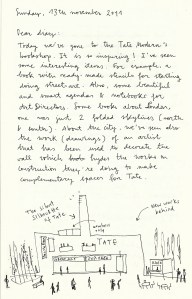 Sunday, 13th november 2011
Dear diary:
Today we've gone to the Tate Modern's
bookshop. It is so inspiring! I've seen
some interesting ideas. For example, a
book with ready-made stencils for starting
doing street-art. Also, some beautiful
and smart agendas & notebooks for
Art Directors. Some books about London,
one was just 2 folded skylines (north
& south). About the city, we've seen also
the work (drawings) of an artist
that has been used to decorate the
wall which hides the works in
construction they're doing to make
complementary spaces for Tate
The
silhouette
of Tate
new works
behind
TATE